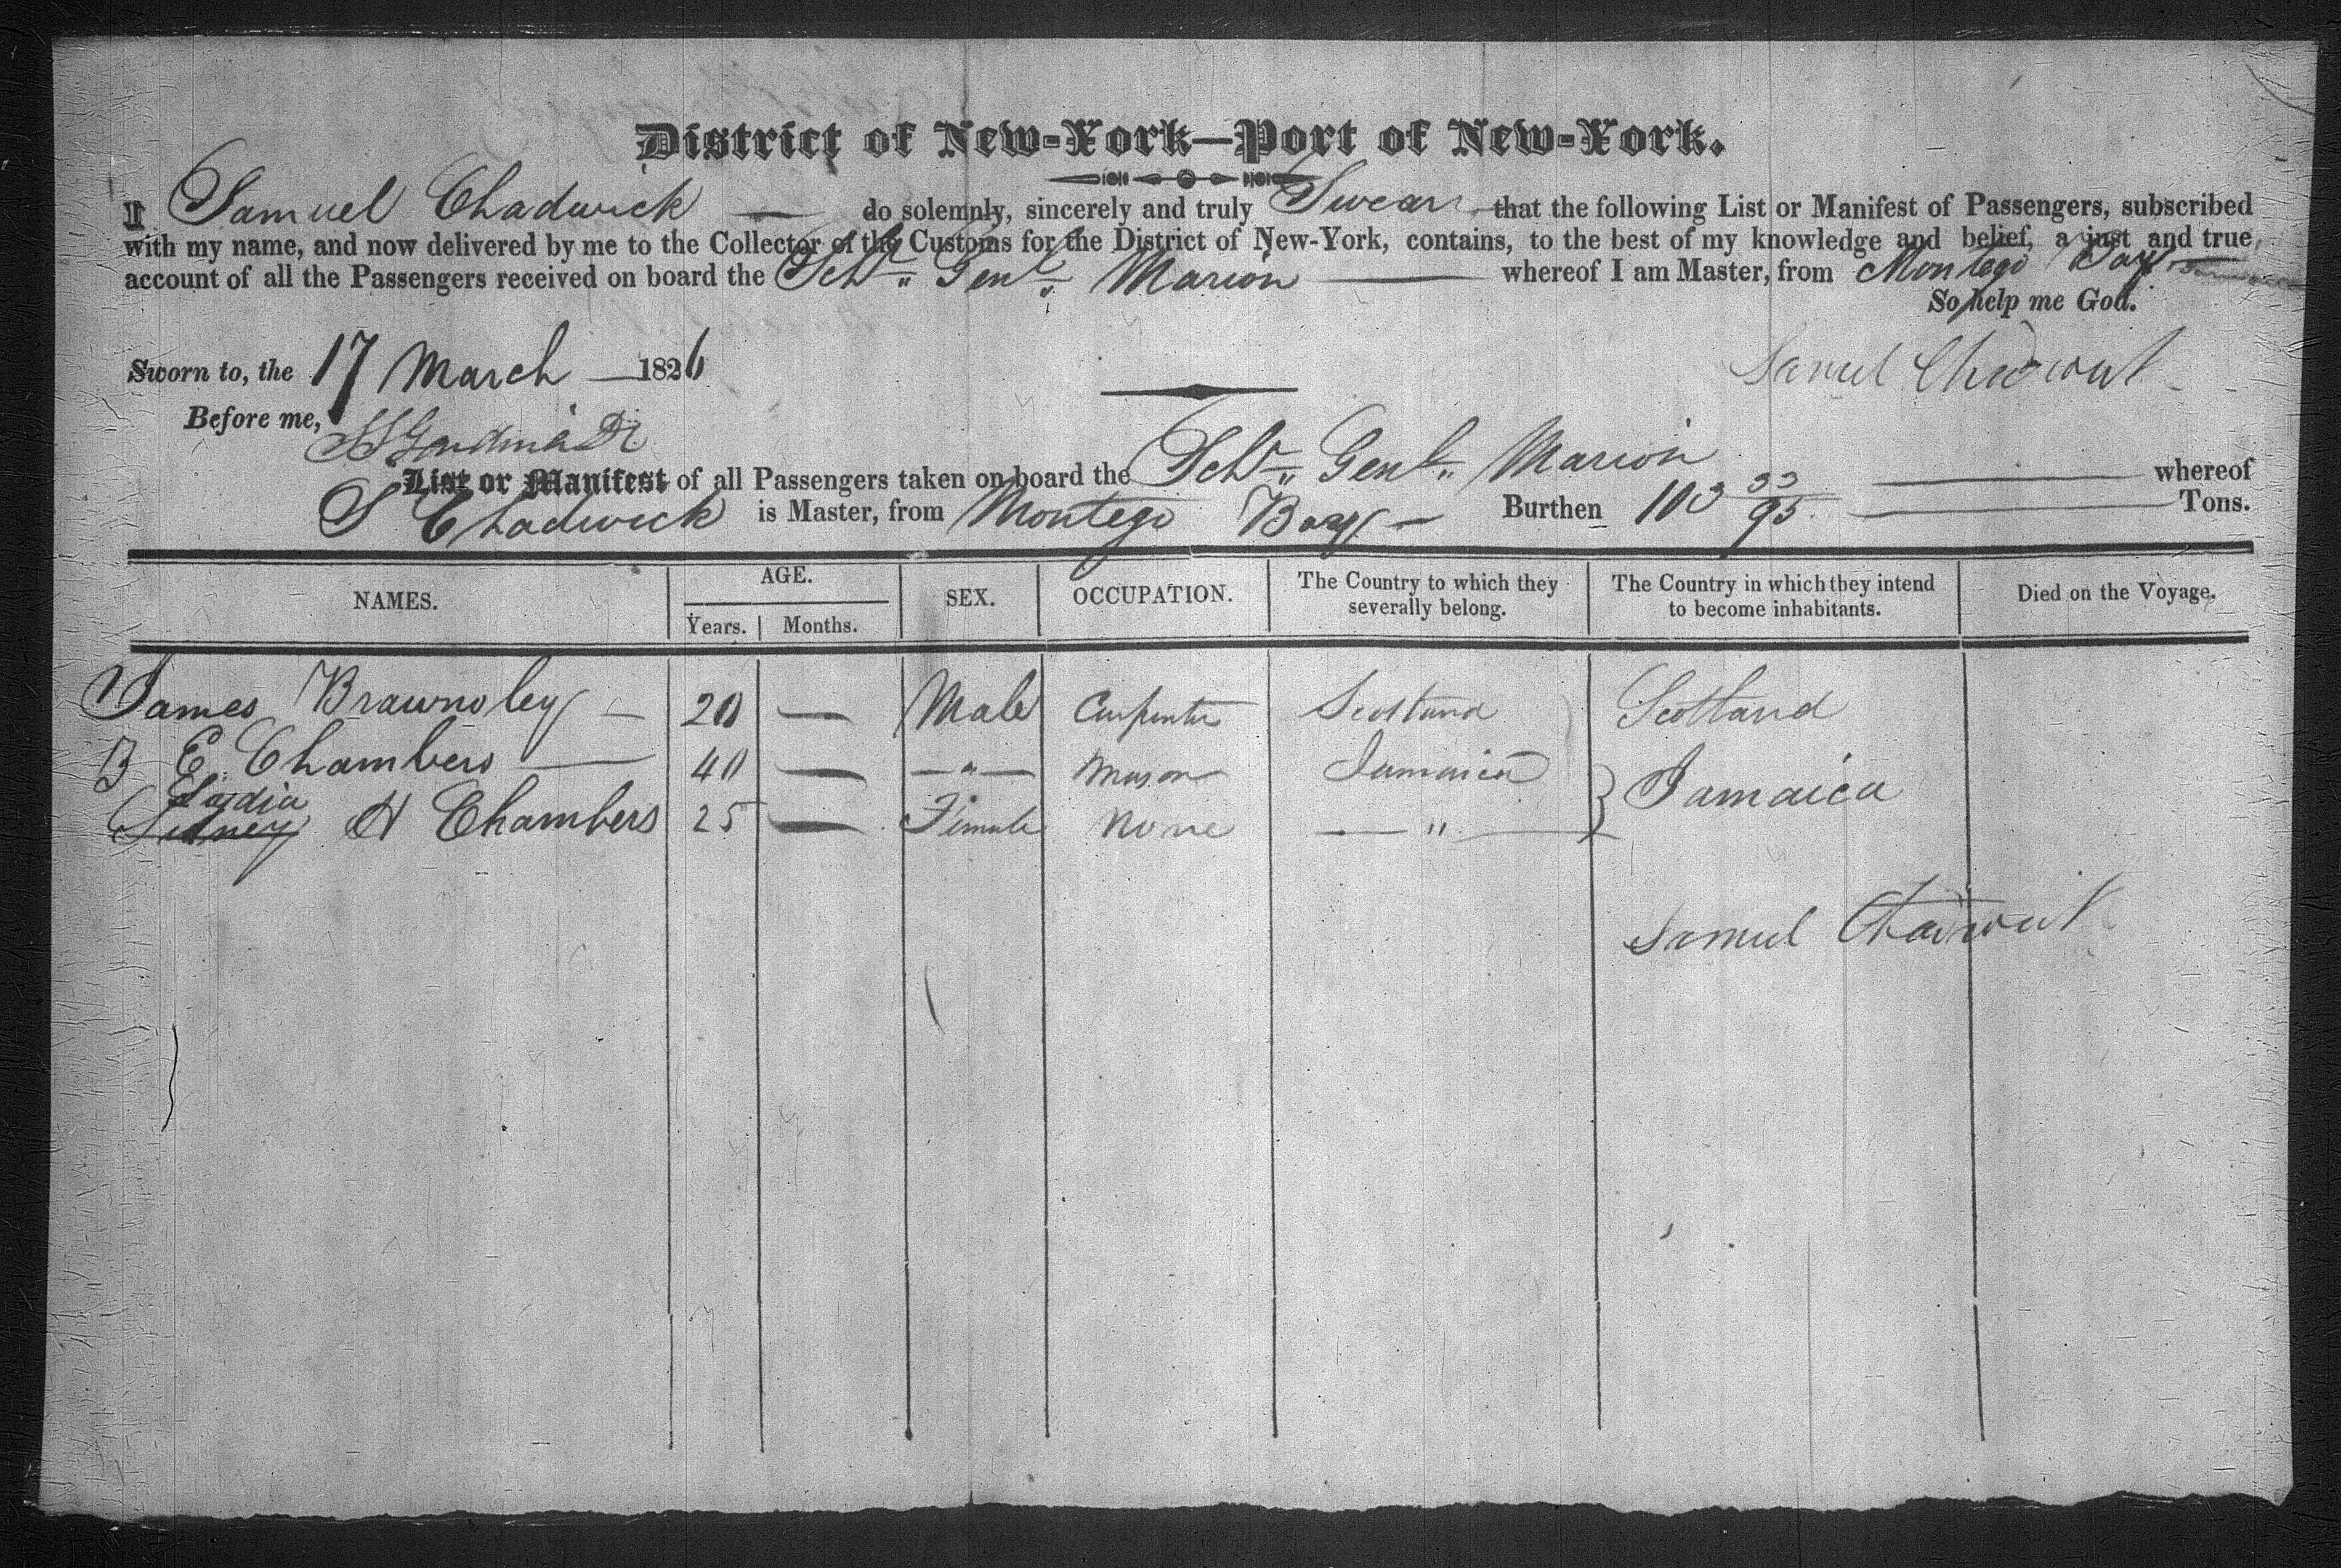 District of New-York—Port of New-York.
I Samuel Chadwick — do solemnly, sincerely and truly Swear that the following List or Manifest of Passengers, subscribed
with my name, and now delivered by me to the Collector of the Customs for the District of New-York, contains, to the best of my knowledge and belief, a just and true
account of all the Passengers received on board the Schr Genl Marion — whereof I am Master, from Montego Bay
So help me God.
Sworn to, the 17 March — 1826
Samuel Chadwick
Before me,
List or Manifest of all Passengers taken on board the Schr Genl Marion — whereof
S Chadwick is Master, from Montego Bay — Burthen 103 33/95 — Tons.
NAMES. AGE. SEX. OCCUPATION. The Country to which they severally belong. The Country in which they intend to become inhabitants. Died on the Voyage.
Years. Months.
James Brawnoley — 20 — Male Carpenter Scotland Scotland
B E Chambers — 40 — — " — Mason Jamaica } Jamaica
Lydia
Sidney H Chambers 25 — Female None — " —
Samuel Chadwick